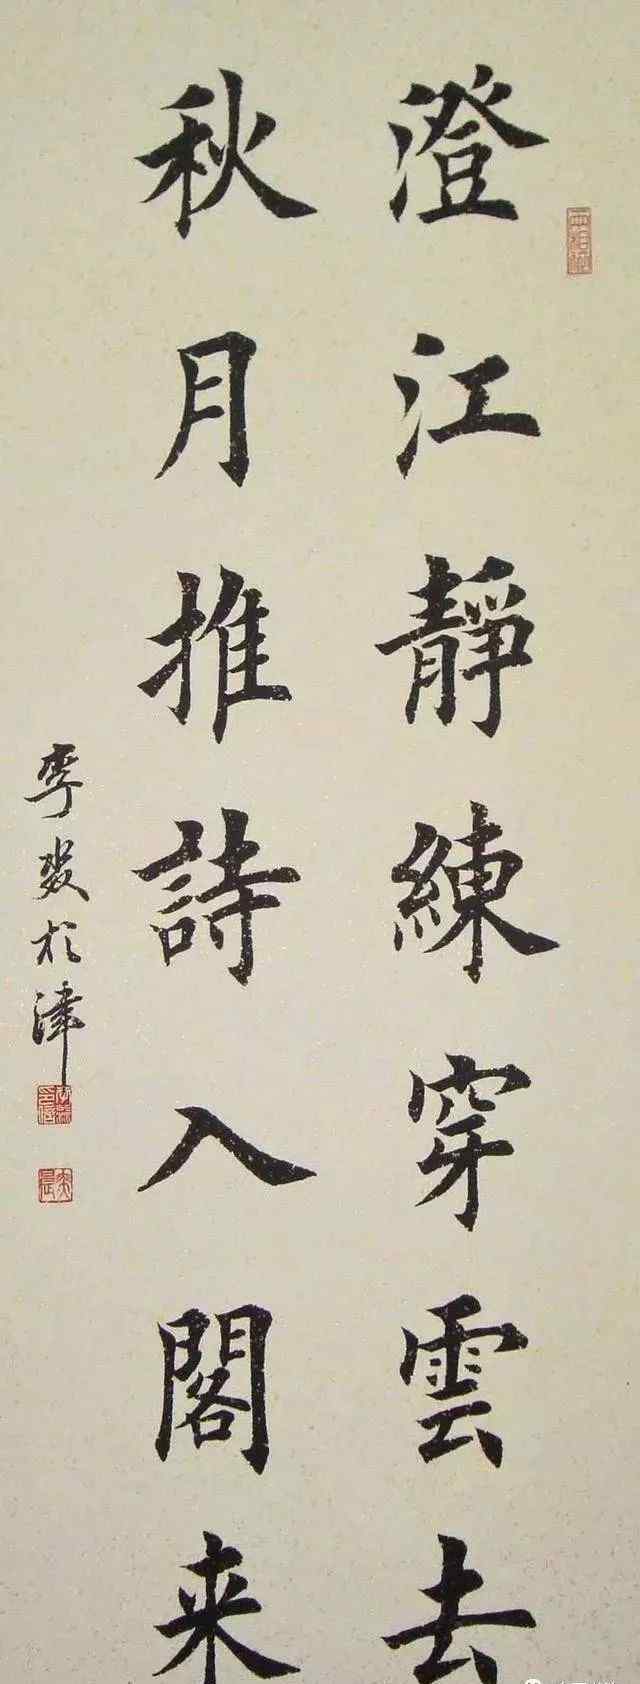 澄江靜練穿雲去
秋月推詩入閣来
於津